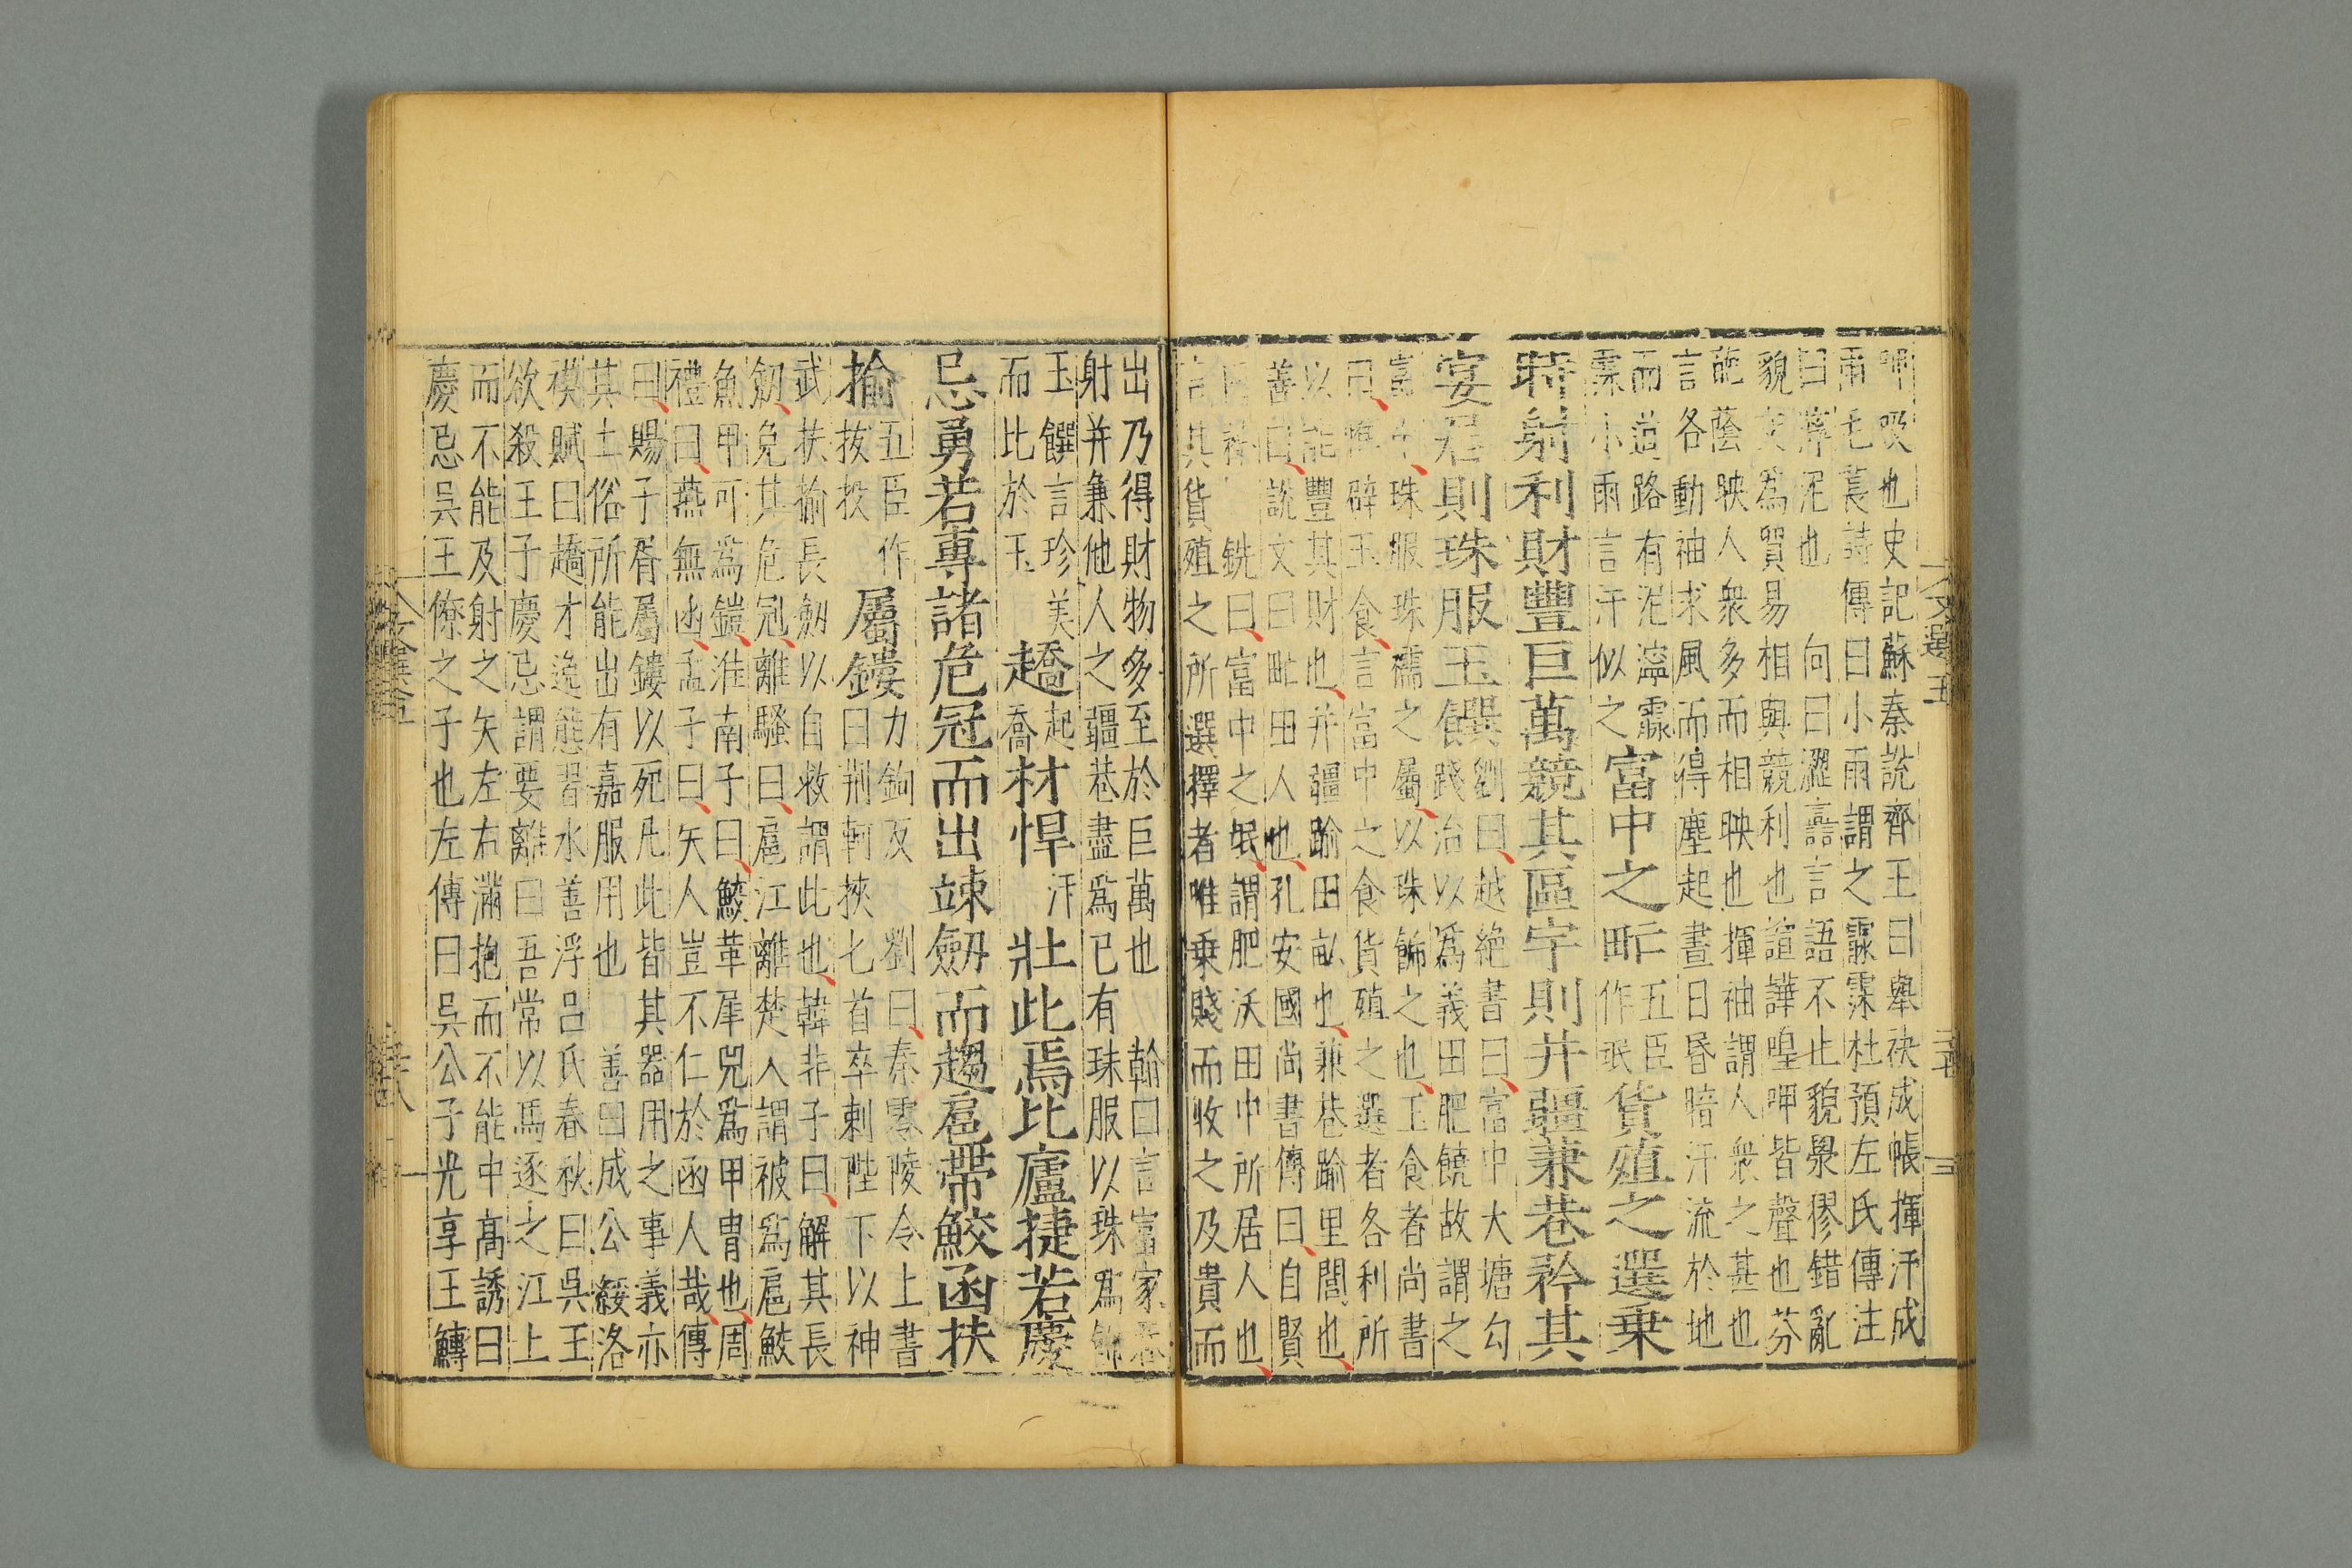 呷吸也史記蘇秦說齊王曰舉袂成帳揮汗成
雨毛萇詩傳曰小雨謂之霡霂杜預左氏傳注
曰濘泥也　向曰澀譶言語不止貌㶅㺒錯亂
貌交爲貿易相與競利也諠譁喤呷皆聲也芬
葩蔭映人衆多而相映也揮袖謂人衆之甚也
言各動袖求風而得塵起晝日昏暗汗流於地
而道路有泥濘霡
霂小雨言汗似之
富中之甿
五臣
作氓
貨殖之選乗
時射利財豐巨萬競其區宇則并疆兼巷矜其
宴居則珠服玉饌
劉曰越絶書曰富中大塘勾
踐治以爲義田肥饒故謂之
富中珠服珠襦之屬以珠飾之也玉食者尚書
曰惟辟玉食言富中之食貨殖之選者各利所
以能豐其財也并疆踰田畝也兼巷踰里閭也
善曰說文曰甿田人也孔安國尚書傳曰自賢
曰矜　銑曰富中之氓謂肥沃田中所居人也
言其貨殖之所選擇者唯乗賤而收之及貴而
出乃得財物多至於巨萬也　翰曰言富家巷
射并兼他人之疆巷盡爲已有珠服以珠爲飾
玉饌言珍美
而比於玉
趫
起
喬
材悍
汗
壯此焉比廬捷若慶
忌勇若專諸危冠而出竦劒而趨扈帶鮫函扶
揄
五臣作
拔投
屬鏤
力鉤反　劉曰秦零陵令上書
曰荆軻挾匕首卒刺陛下以神
武扶揄長劒以自救謂此也韓非子曰解其長
劒免其危冠離騷曰扈江離楚人謂被爲扈鮫
魚甲可爲鎧淮南子曰鮫革犀兕爲甲胄也周
禮曰燕無函孟子曰矢人豈不仁於函人哉傳
曰賜子胥屬鏤以死凡此皆其器用之事義亦
其土俗所能出有嘉服用也　善曰成公綏洛
禊賦曰趫才逸態習水善浮呂氏春秋曰吳王
欲殺王子慶忌謂要離曰吾常以馬逐之江上
而不能及射之矢左右滿抱而不能中髙誘曰
慶忌吳王僚之子也左傳曰吳公子光享王鱄